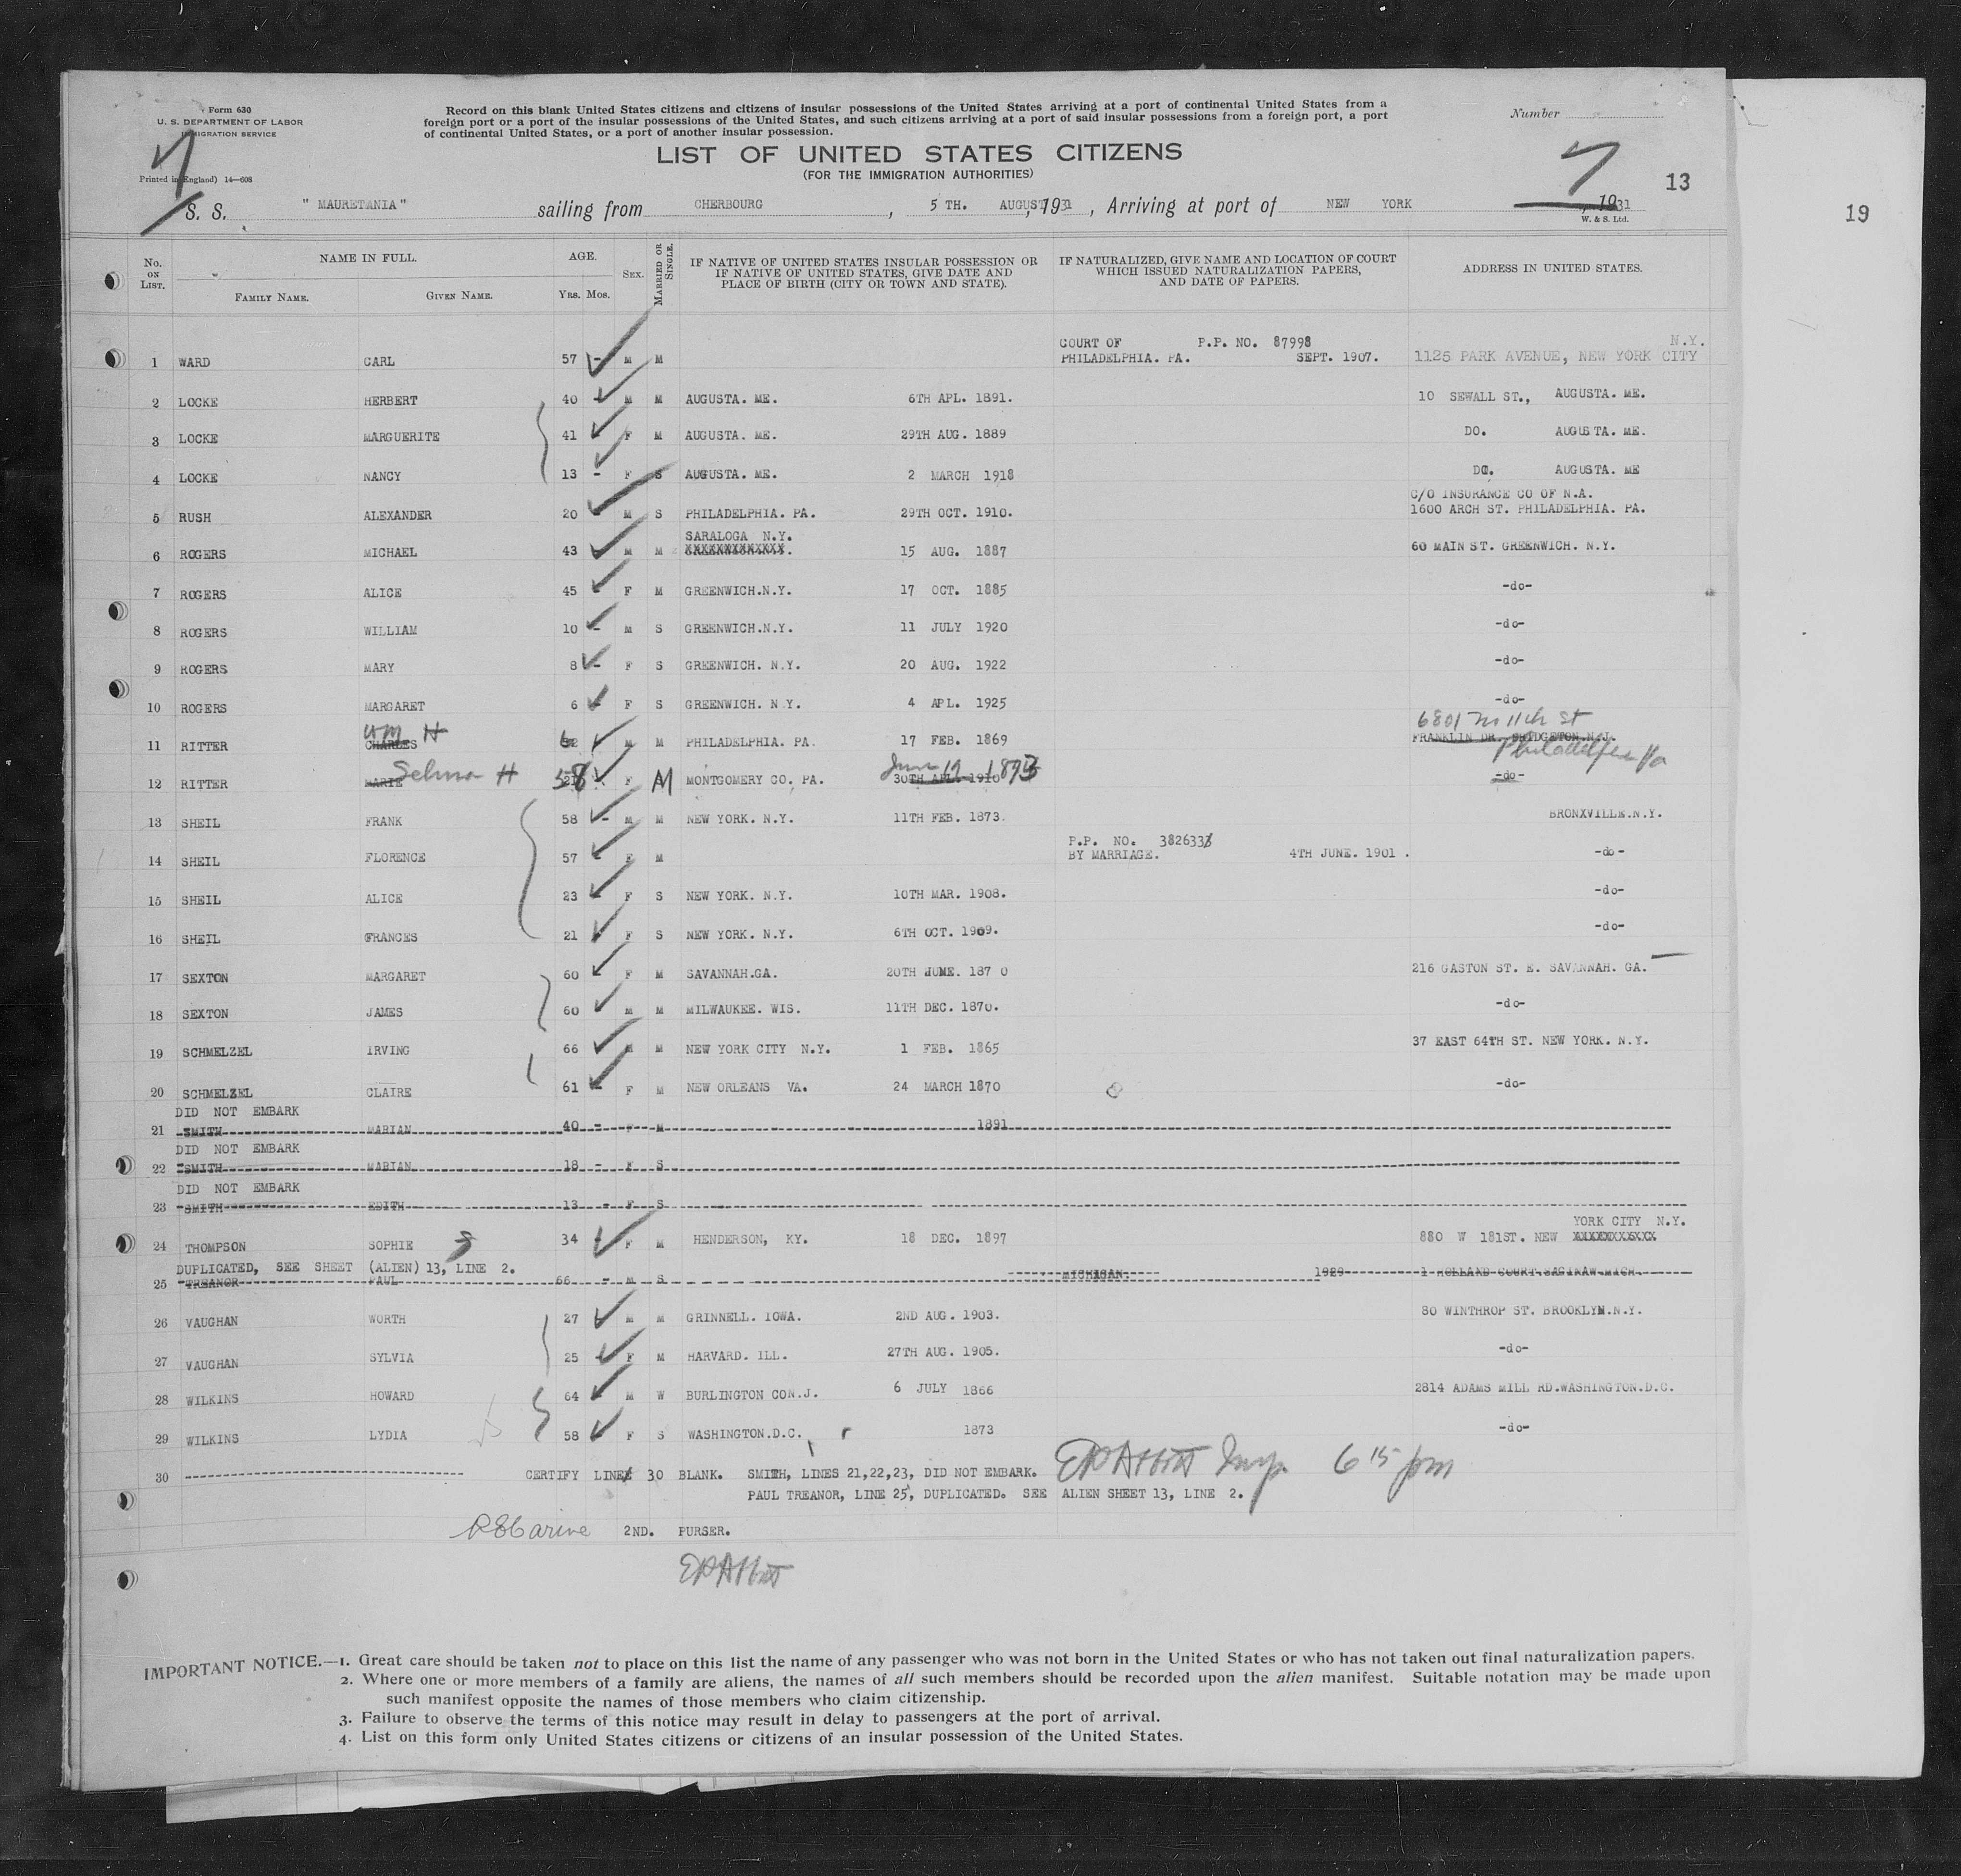 Form 630
U. S. DEPARTMENT OF LABOR
IMMIGRATION SERVICE
Printed in England) 14—608
Record on this blank United States citizens and citizens of insular possessions of the United States arriving at a port of continental United States from a
foreign port or a port of the insular possessions of the United States, and such citizens arriving at a port of said insular possessions from a foreign port, a port
of continental United States, or a port of another insular possession.
Number
LIST OF UNITED STATES CITIZENS
(FOR THE IMMIGRATION AUTHORITIES)
7
7
13
19
S. S. " MAURETANIA " sailing from CHERBOURG , 5 TH. AUGUST, 1931 , Arriving at port of NEW YORK , 1931
W. & S. Ltd.
No. ON LIST. NAME IN FULL. AGE. SEX. MARRIED OR SINGLE. IF NATIVE OF UNITED STATES INSULAR POSSESSION OR IF NATIVE OF UNITED STATES, GIVE DATE AND PLACE OF BIRTH (CITY OR TOWN AND STATE). IF NATURALIZED, GIVE NAME AND LOCATION OF COURT WHICH ISSUED NATURALIZATION PAPERS, AND DATE OF PAPERS. ADDRESS IN UNITED STATES.
FAMILY NAME. GIVEN NAME. YRS. MOS.
COURT OF P.P. NO. 87998 N.Y.
1 WARD CARL 57 - M M PHILADELPHIA. PA. SEPT. 1907. 1125 PARK AVENUE, NEW YORK CITY
2 LOCKE HERBERT 40 - M M AUGUSTA. ME. 6TH APL. 1891. 10 SEWALL ST., AUGUSTA. ME.
3 LOCKE MARGUERITE 41 - F M AUGUSTA. ME. 29TH AUG. 1889 DO. AUGUSTA. ME.
4 LOCKE NANCY 13 - F S AUGUSTA. ME. 2 MARCH 1918 DO. AUGUSTA. ME
C/O INSURANCE CO OF N.A.
5 RUSH ALEXANDER 20 - M S PHILADELPHIA. PA. 29TH OCT. 1910. 1600 ARCH ST. PHILADELPHIA. PA.
SARALOGA N.Y.
6 ROGERS MICHAEL 43 - M M XXXXXXXXXXXXX. 15 AUG. 1887 60 MAIN ST. GREENWICH. N.Y.
7 ROGERS ALICE 45 - F M GREENWICH.N.Y. 17 OCT. 1885 -do-
8 ROGERS WILLIAM 10 - M S GREENWICH.N.Y. 11 JULY 1920 -do-
9 ROGERS MARY 8 - F S GREENWICH. N.Y. 20 AUG. 1922 -do-
10 ROGERS MARGARET 6 - F S GREENWICH. N.Y. 4 APL. 1925 -do-
Wm H 6801 N 11th St
11 RITTER CHARLES 62 M M PHILADELPHIA. PA. 17 FEB. 1869 FRANKLIN DR. BRIDGETON.N.J.
Selma H June 19 1873 Philadelphia Pa
12 RITTER MARIE 58 F M MONTGOMERY CO. PA. 30TH APL. 1910 -do-
13 SHEIL FRANK 58 - M M NEW YORK. N.Y. 11TH FEB. 1873. BRONXVILLE.N.Y.
P.P. NO. 382633
14 SHEIL FLORENCE 57 - F M BY MARRIAGE. 4TH JUNE. 1901 . -do-
15 SHEIL ALICE 23 - F S NEW YORK. N.Y. 10TH MAR. 1908. -do-
16 SHEIL FRANCES 21 - F S NEW YORK. N.Y. 6TH OCT. 1909. -do-
17 SEXTON MARGARET 60 - F M SAVANNAH.GA. 20TH JUNE. 187 0 216 GASTON ST. E. SAVANNAH. GA.
18 SEXTON JAMES 60 - M M MILWAUKEE. WIS. 11TH DEC. 1870. -do-
19 SCHMELZEL IRVING 66 M M NEW YORK CITY N.Y. 1 FEB. 1865 37 EAST 64TH ST. NEW YORK. N.Y.
20 SCHMELZEL CLAIRE 61 - F M NEW ORLEANS VA. 24 MARCH 1870 -do-
DID NOT EMBARK
21 SMITH MARIAN 40 - F M 1891
DID NOT EMBARK
22 SMITH MARIAN 18 - F S
DID NOT EMBARK
23 SMITH EDITH 13 - F S
YORK CITY N.Y.
24 THOMPSON SOPHIE S 34 - F M HENDERSON, KY. 18 DEC. 1897 880 W 181ST. NEW XXXXXXXXXXX
DUPLICATED, SEE SHEET (ALIEN) 13, LINE 2.
25 TREANOR PAUL 66 - M S MICHIGAN. 1929 1 HOLLAND COURT.SAGINAW.MICH.
26 VAUGHAN WORTH 27 M M GRINNELL. IOWA. 2ND AUG. 1903. 80 WINTHROP ST. BROOKLYN.N.Y.
27 VAUGHAN SYLVIA 25 - F M HARVARD. ILL. 27TH AUG. 1905. -do-
28 WILKINS HOWARD 64 - M W BURLINGTON CON.J. 6 JULY 1866 2814 ADAMS MILL RD.WASHINGTON.D.C.
29 WILKINS LYDIA 58 F S WASHINGTON.D.C. 1873 -do-
30 CERTIFY LINE 30 BLANK. SMITH, LINES 21,22,23, DID NOT EMBARK. EPAbbott Insp. 6 15 pm
PAUL TREANOR, LINE 25, DUPLICATED. SEE ALIEN SHEET 13, LINE 2.
2ND. PURSER.
EPAbbott
IMPORTANT NOTICE.—1. Great care should be taken not to place on this list the name of any passenger who was not born in the United States or who has not taken out final naturalization papers.
2. Where one or more members of a family are aliens, the names of all such members should be recorded upon the alien manifest. Suitable notation may be made upon
such manifest opposite the names of those members who claim citizenship.
3. Failure to observe the terms of this notice may result in delay to passengers at the port of arrival.
4. List on this form only United States citizens or citizens of an insular possession of the United States.